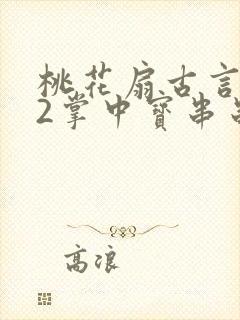 桃花扇古言
2掌中寶串
高浪